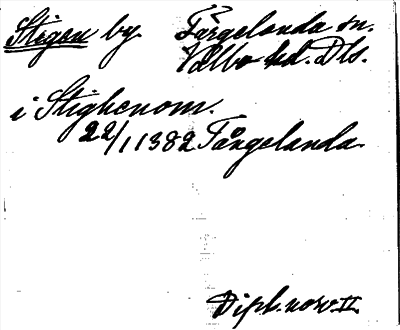 Stigen by. Färgelanda sn.
Valbo hd. Dls.
i Stighenom.
22/1 1382 Färgelanda.
Dipl. norv. II.